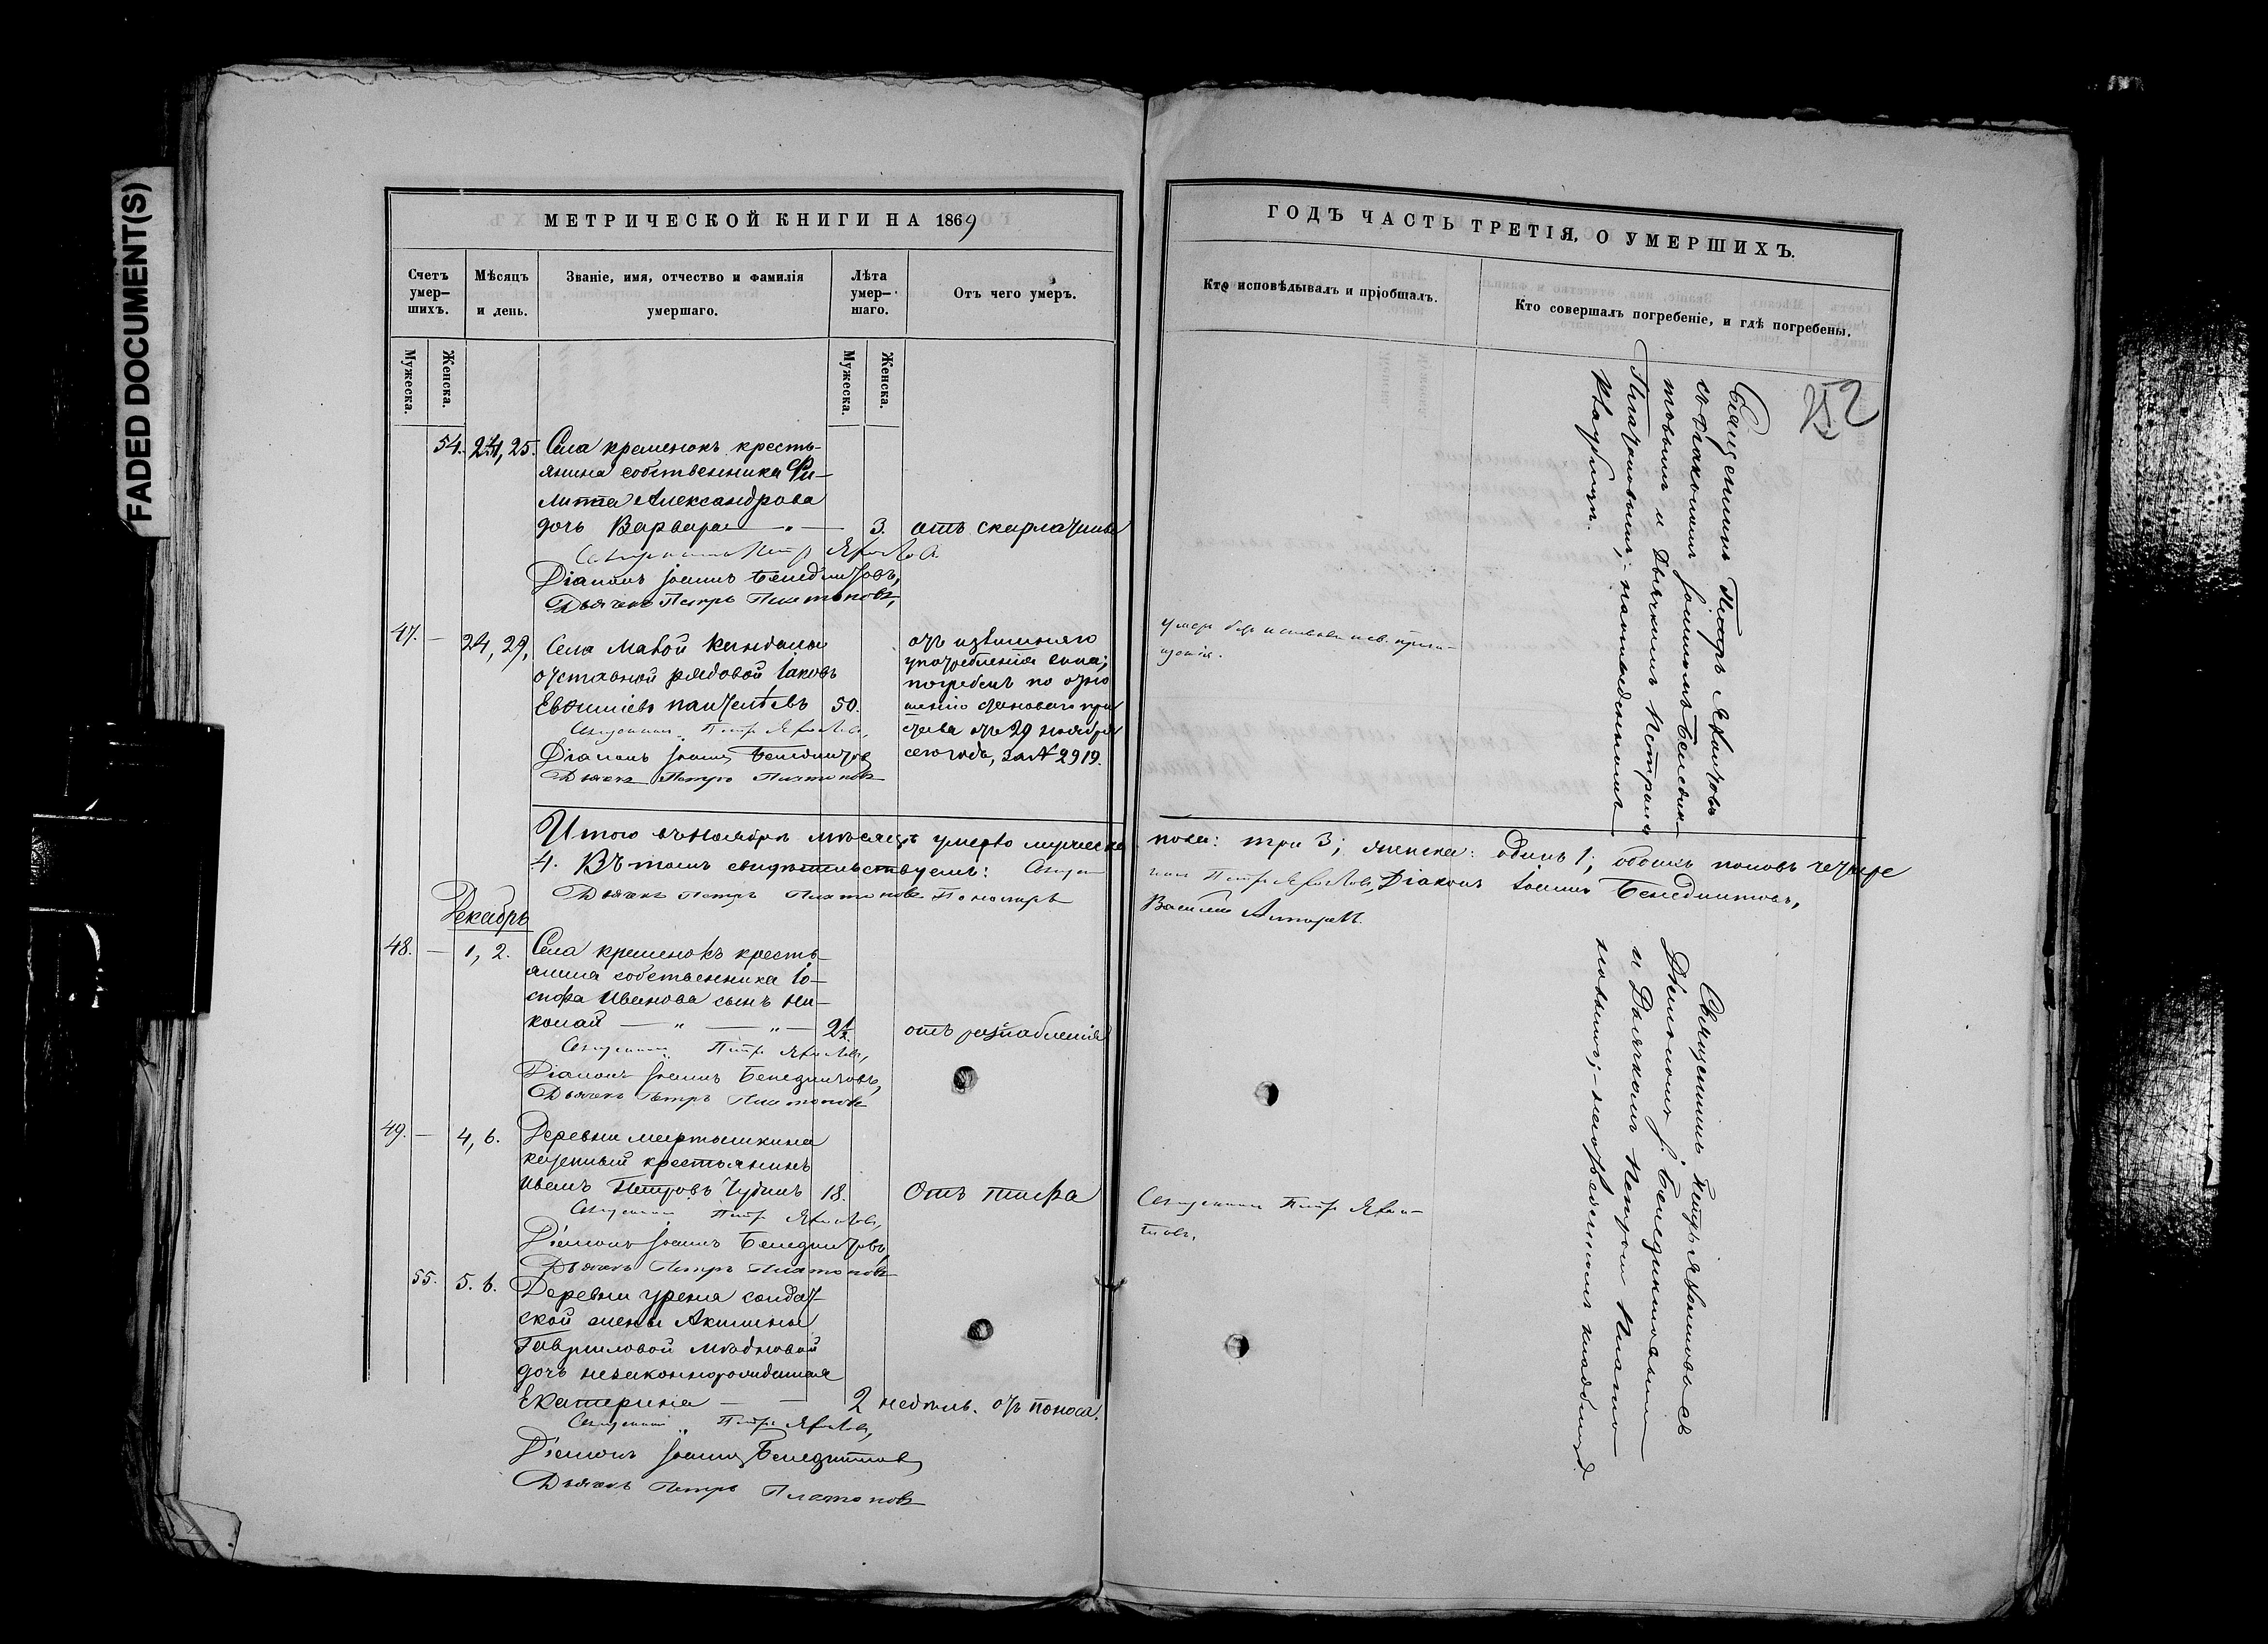 FADED DOCUMENT(S)
МЕТРИЧЕСКОЙ КНИГИ НА 1869
Счетъ умер-шихъ.
Мѣсяцъ и день.
Званіе, имя, отчество и фамилія умершаго.
Лѣта умер-шаго.
Отъ чего умеръ.
Мужеска.
Женска.
Мужеска.
Женска.
54. 24, 25. Села кременокъ кресть-
янина собственника Фи-
липпа Александрова
дочь Варвара — " — 3. отъ скарлатины
Священникъ Петръ
Діаконъ Іоаннъ Бенедиктовъ,
Дьячекъ Петръ Платоновъ,
47. — 24, 29, Села Малой Кандалы
отставной рядовой Іаковъ
Евѳиміевъ Пантелѣевъ 50.
отъ излишняго
употребленія вина;
погребенъ по отно
шенію становаго при
става отъ 29 ноября
сего года, за № 2919.
Священникъ Петръ
Діаконъ Іоаннъ Бенедиктовъ
Дьячекъ Петръ Платоновъ
Итого въ Ноябрѣ мѣсяцѣ умерло мужеска
4. Въ томъ свидѣтельствуемъ: Священ
Дьячекъ Петръ Платоновъ Пономарь
Декабрь
48. — 1, 2. Села кременокъ кресть-
янина собственника Іо-
сифа Иванова сынъ Ни-
колай — " — " — отъ разслабленія
Священникъ Петръ
Діаконъ Іоаннъ Бенедиктовъ,
Дьячекъ Петръ Платоновъ
49. — 4, 6. Деревни мартышкина
казенный крестьянинъ
Иванъ Петровъ 18. Отъ тифа
Священникъ Петръ
Діаконъ Іоаннъ Бенедиктовъ
Дьячекъ Петръ Платоновъ
55. 5. 6. Деревни урена солдат-
ской жены Акилины
Гавриловой
дочь незаконнорожденная
Екатерина — — 2 недѣль. отъ поноса.
Священникъ Петръ
Діаконъ Іоаннъ Бенедиктовъ
Дьячекъ Петръ Платоновъ
ГОДЪ ЧАСТЬ ТРЕТІЯ, О УМЕРШИХЪ.
Кто исповѣдывалъ и пріобщалъ.
Кто совершалъ погребеніе, и гдѣ погребены.
252
Священникъ Петръ
съ діакономъ Іоанномъ Бенедик-
товымъ и Дьячкомъ Петромъ
Платоновымъ, на отведенномъ
кладбищѣ.
умеръ безъ исповѣди и св. прича-
щенія.
пола: три 3; женска: одинъ 1; обоихъ половъ четыре
никъ Петръ Діаконъ Іоаннъ Бенедиктовъ,
Василій
Священникъ Петръ съ
Діакономъ І. Бенедиктовымъ
и Дьячкомъ Петромъ Плато-
новымъ; на отведенномъ кладбищѣ.
Священникъ Петръ